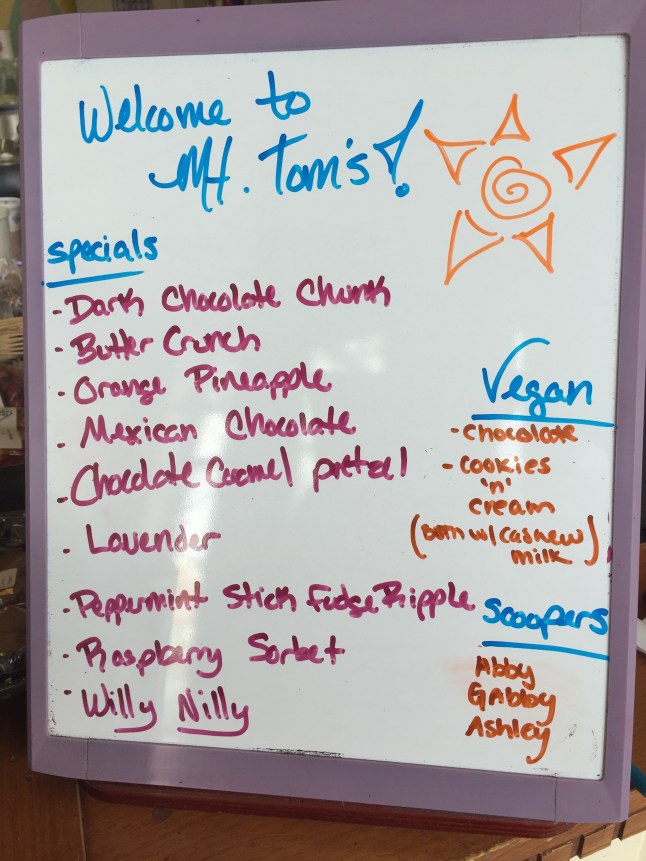 Welcome to
Mt. Tom's!
specials
- Dark Chocolate Chunk
- Butter Crunch
- Orange Pineapple
- Mexican Chocolate
- Chocolate Caramel pretzel
- Lavender
- Peppermint Stick Fudge Ripple
- Raspberry Sorbet
- Willy Nilly
Vegan
- chocolate
- cookies
'n'
cream
(both w/cashew
milk)
Scoopers
Abby
GAbby
Ashley